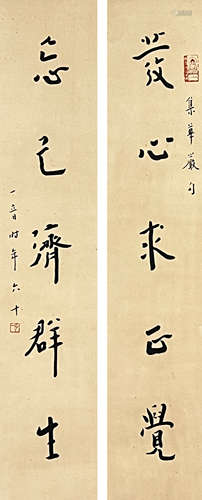 發心求正覺
集華嚴句
忘己濟群生
一音時年六十